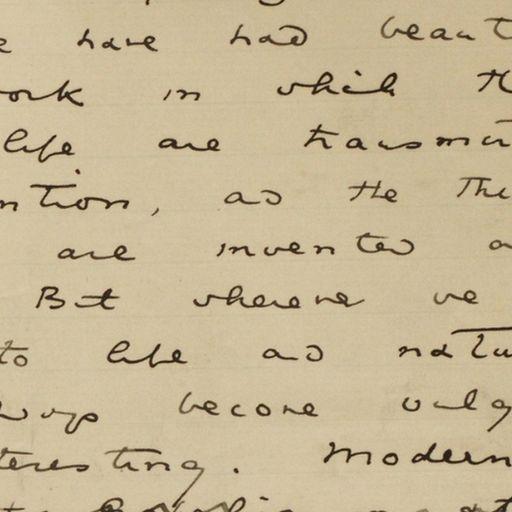 e have had beaut
ork in which th
life are transmut
ntion, and the Thi
are invented a
But wherever we
to life and natu
ways become vulg
teresting. Modern